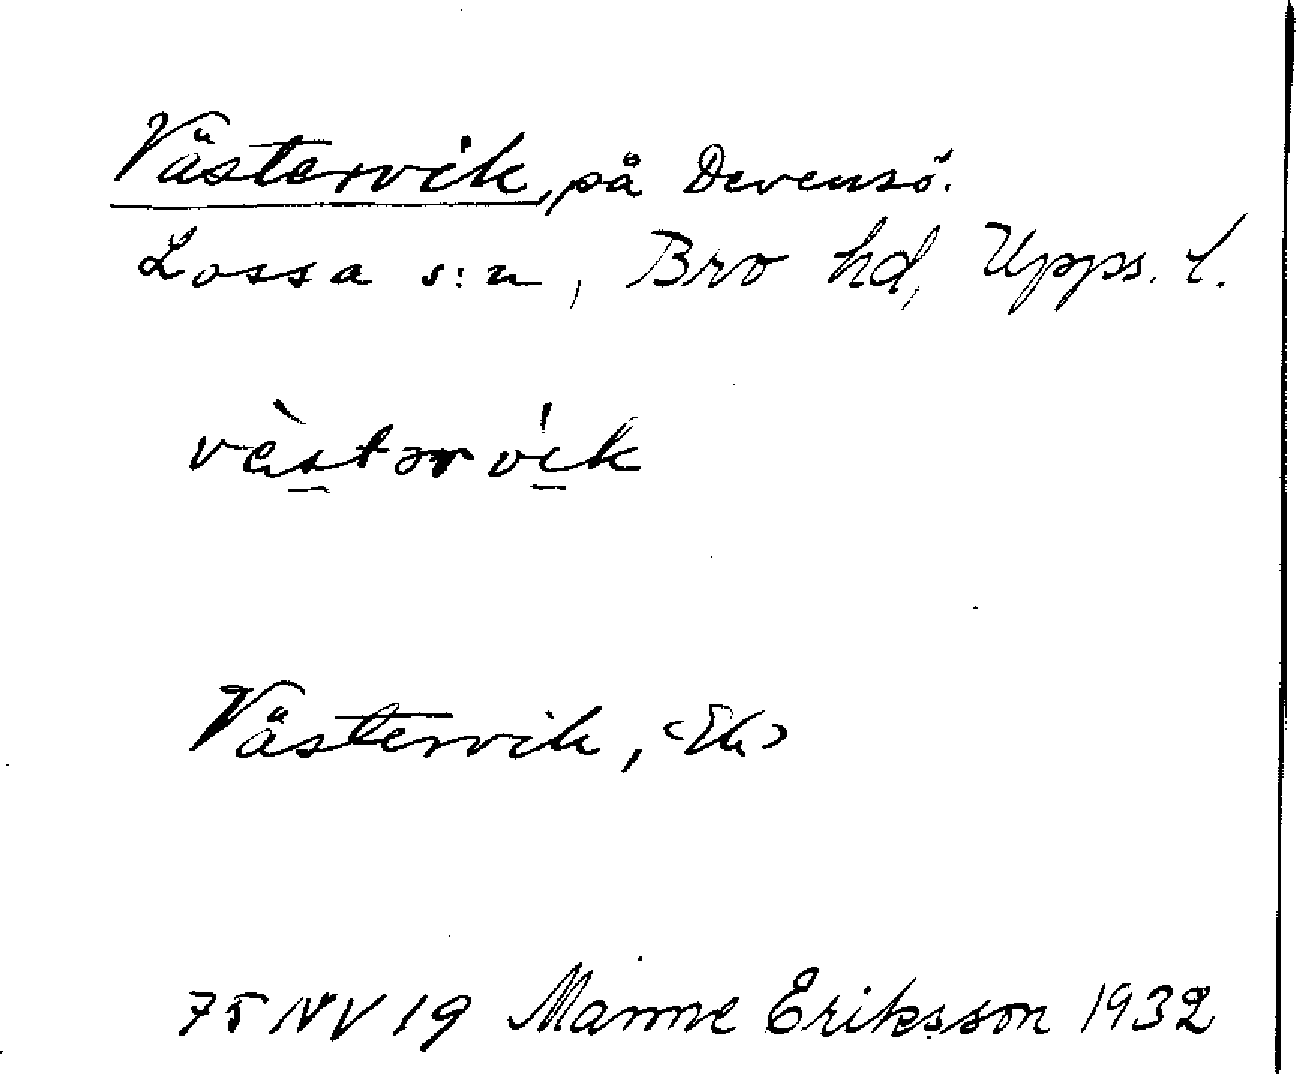 Västervik, på Devensö.
Lossa s:n, Bro hd, Upps. l.
vàstərvik
Västervik, <Ek>
75 NV 19 Manne Eriksson 1932